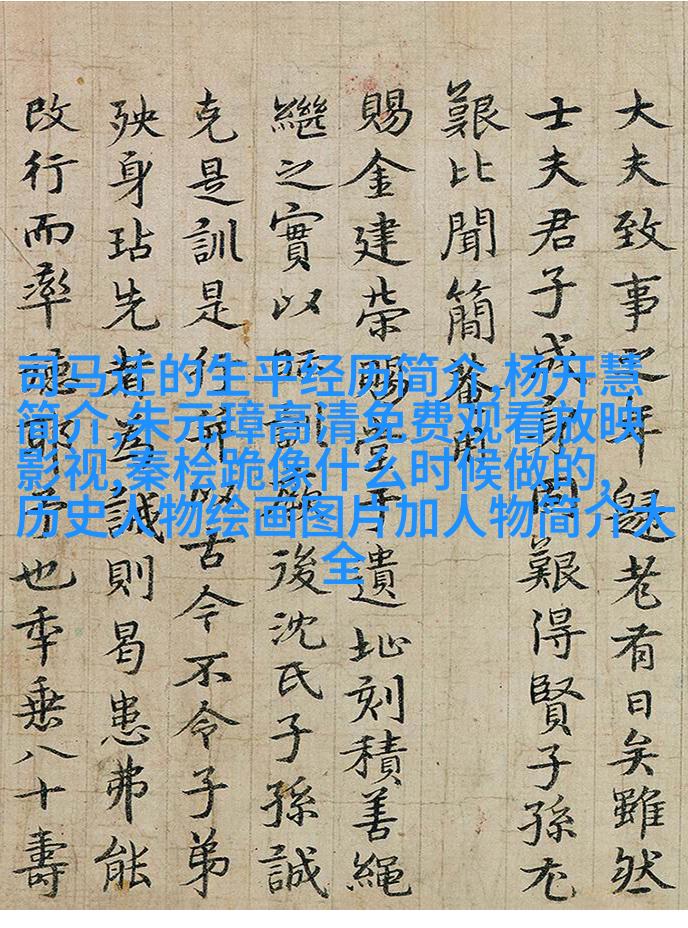 大夫致事之年老有日矣雖然
士夫君子成身固艱得賢子孫尤
艱比聞簡眷用
賜金建榮賜堂于遺址刻積善繩
繼之實以昭訓厥後沈氏子孫誠
克是訓是行并以古今不令子弟
殃身玷先者為誡則曷患弗能
改行而率聽耶予也年垂八十壽
司马迁的生平经历简介,杨开慧
简介,朱元璋高清免费观看放映
影视,秦桧跪像什么时候做的,
历史人物绘画图片加人物简介大
全